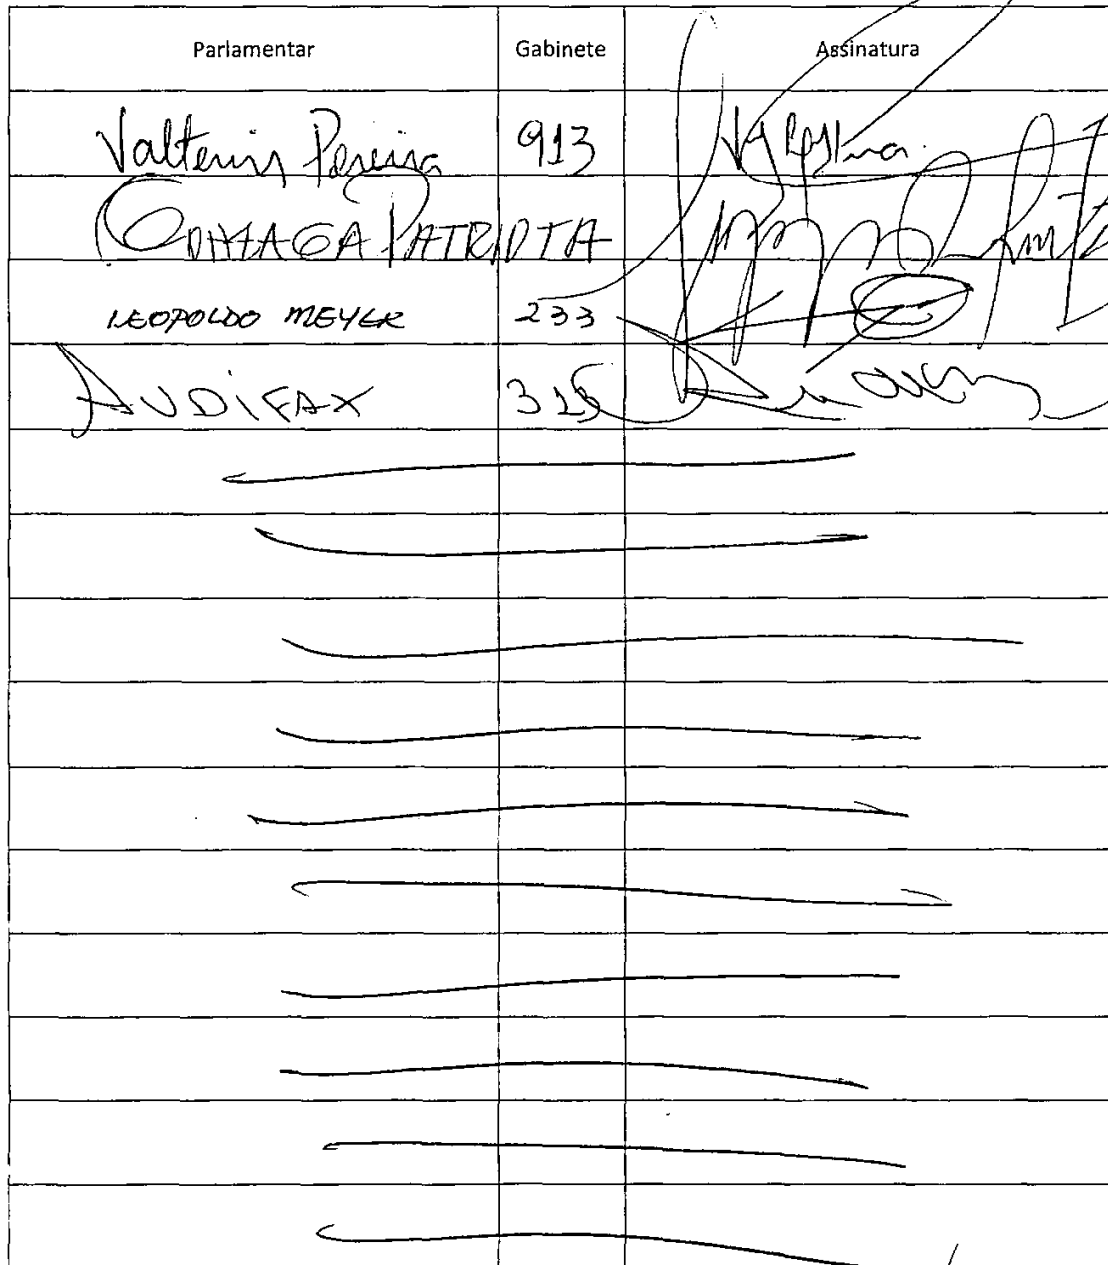 Parlamentar Gabinete Assinatura
Valtenir Pereira 913
GONZAGA PATRIOTA
LEOPOLDO MEYER 233
AUDIFAX 315